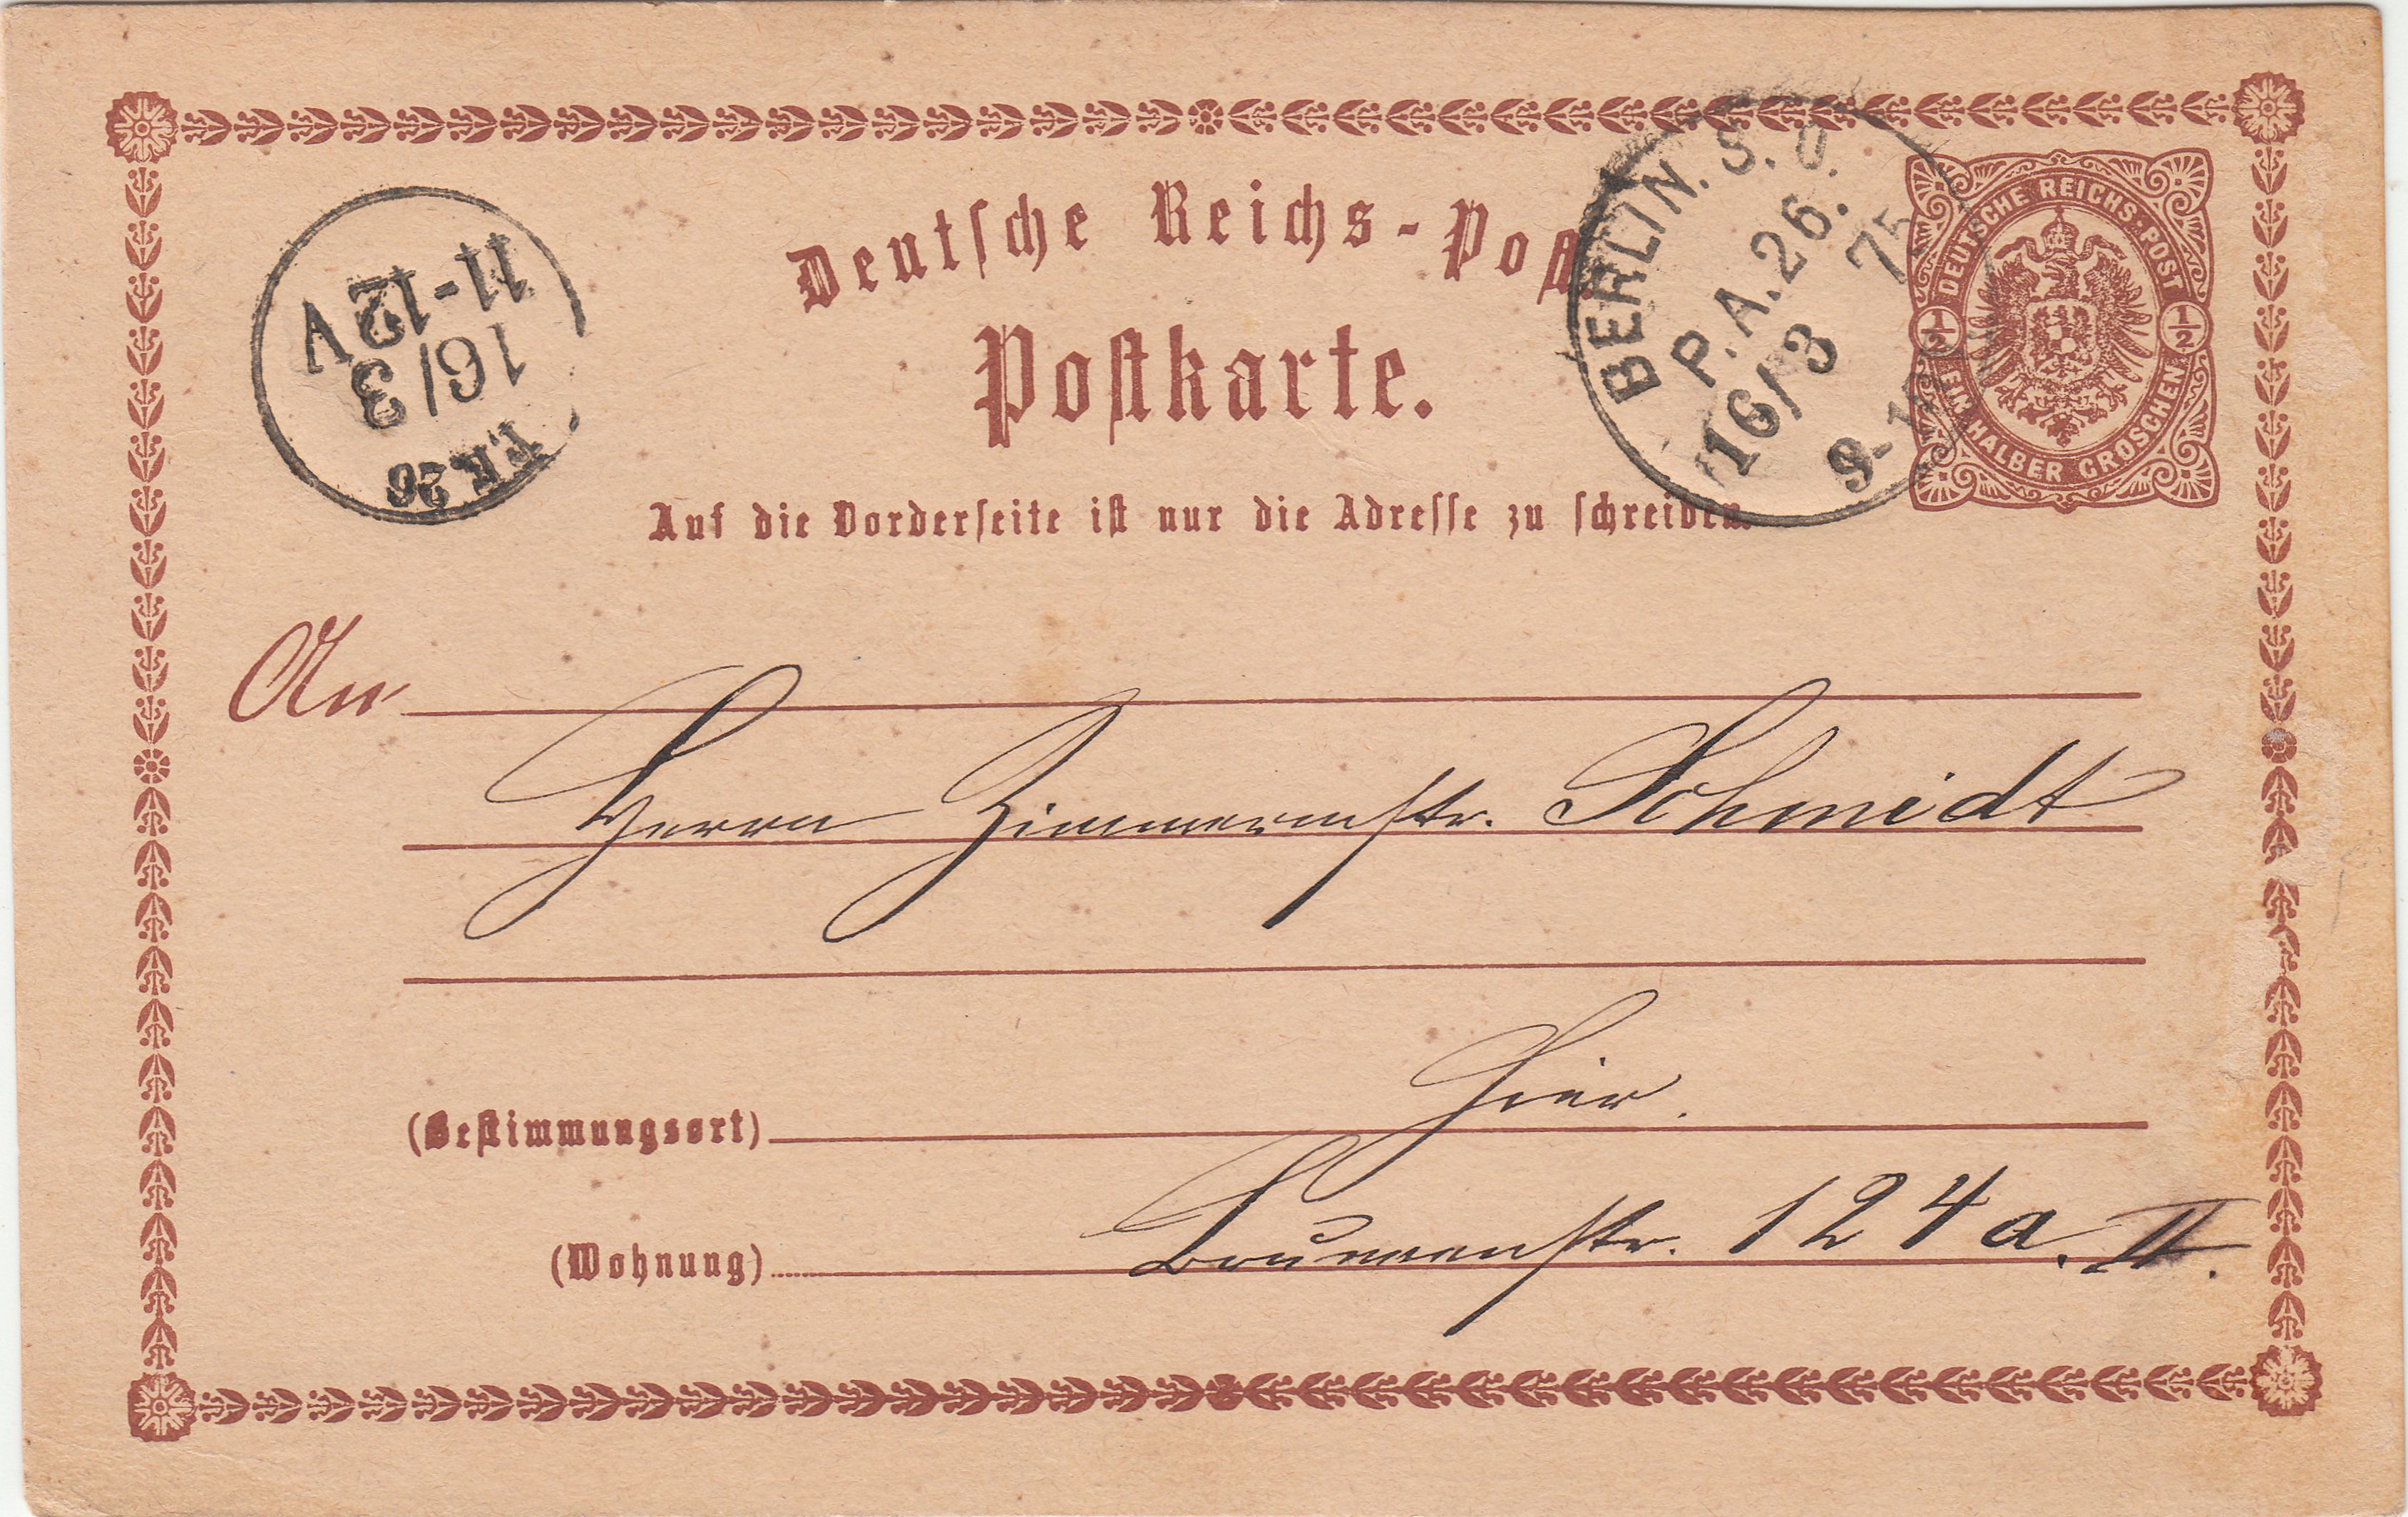 Deutsche Reichs-Post.
Postkarte.
Auf die Vorderseite ist nur die Adresse zu schreiben.
11-12V
16/3
26
BERLIN. S. O.
P.A. 26.
16/3 75
9-10
DEUTSCHE REICHS-POST
1/2 1/2
EIN HALBER GROSCHEN
An
Herrn Zimmermstr. Schmidt
(Bestimmungsort) Hier.
(Wohnung) Brunnenstr. 124a. II.